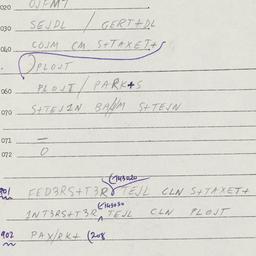 020 OJFMT
030 SEJDL / GERT+DL
040 COJM CM S+TAXET+
PLOJT
060 PLOJT / PARK+S
070 S+TEJ1N BA/JM S+TEJN
071 —
072 O
901 FED3RS+T3R TEJL CLN S+TAXET+
1NT3RS+T3R TEJL CLN PLOJT
902 PAX/RK+ (208